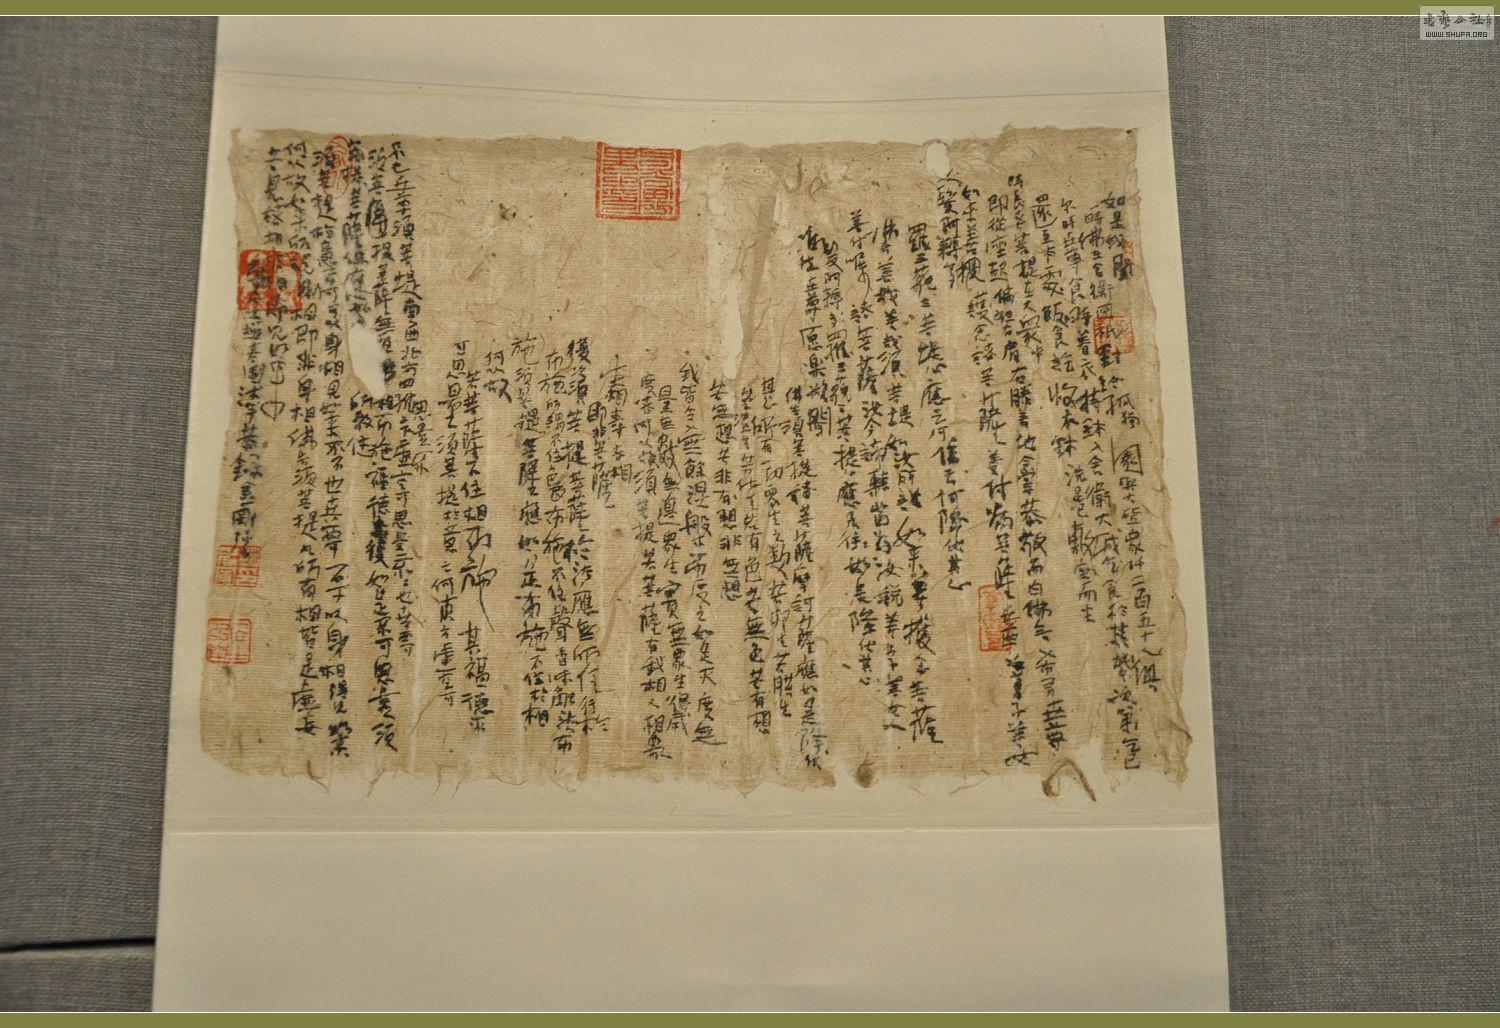 如是我聞
一時佛在舍衛國祇樹給孤獨園與大比丘眾千二百五十人俱
尔時世尊食時着衣持鉢入舍衛大城乞食於其城中次第乞
還至本處飯食訖收衣鉢洗足已敷座而坐
時長老菩提在大眾中
即從座起偏袒右肩右膝著地合掌恭敬而白佛言希有世尊
如來善護念諸菩薩善付囑菩薩世尊善男子善女
人發阿耨多
羅三藐三菩提心應云何住云何降伏其心
佛言善哉善哉須菩提如汝所說如來善護念菩薩
善付囑諸菩薩汝今諦聽當為汝說善男子善女人
發阿耨多羅三藐三菩提心應如是住如是降伏其心
唯然世尊願樂欲聞
佛告須菩提諸菩薩摩訶薩應如是降伏
其心所有一切眾生之類若卵生若胎生
若有色若無色若有想
若無想若非有想非無想
我皆令入無餘涅般而滅度之如是滅度無
量無數無邊眾生實無眾生得滅
度者何以故須菩提若菩薩有我相人相眾
生相壽者相
即非菩薩
復次須菩提菩薩於法應無所住行於
布施所謂不住色布施不住聲香味觸法布
施須菩提菩薩應如是布施不住於相
何以故
若菩薩不住相布施其福德不
可思量須菩提於意云何東方虛空可
思量不
不也世尊須菩提南西北方四維上下虛空可思量不不也世尊
須菩提菩薩無住相布施福德亦復如是不可思量須
菩提菩薩但應如所教住
須菩提於意云何可以身相見如來不不也世尊不可以身相得見如來
何以故如來所說身相即非身相佛告須菩提凡所有相皆是虛妄
若見諸相非相即見如來
WWW.SHUFA.ORG